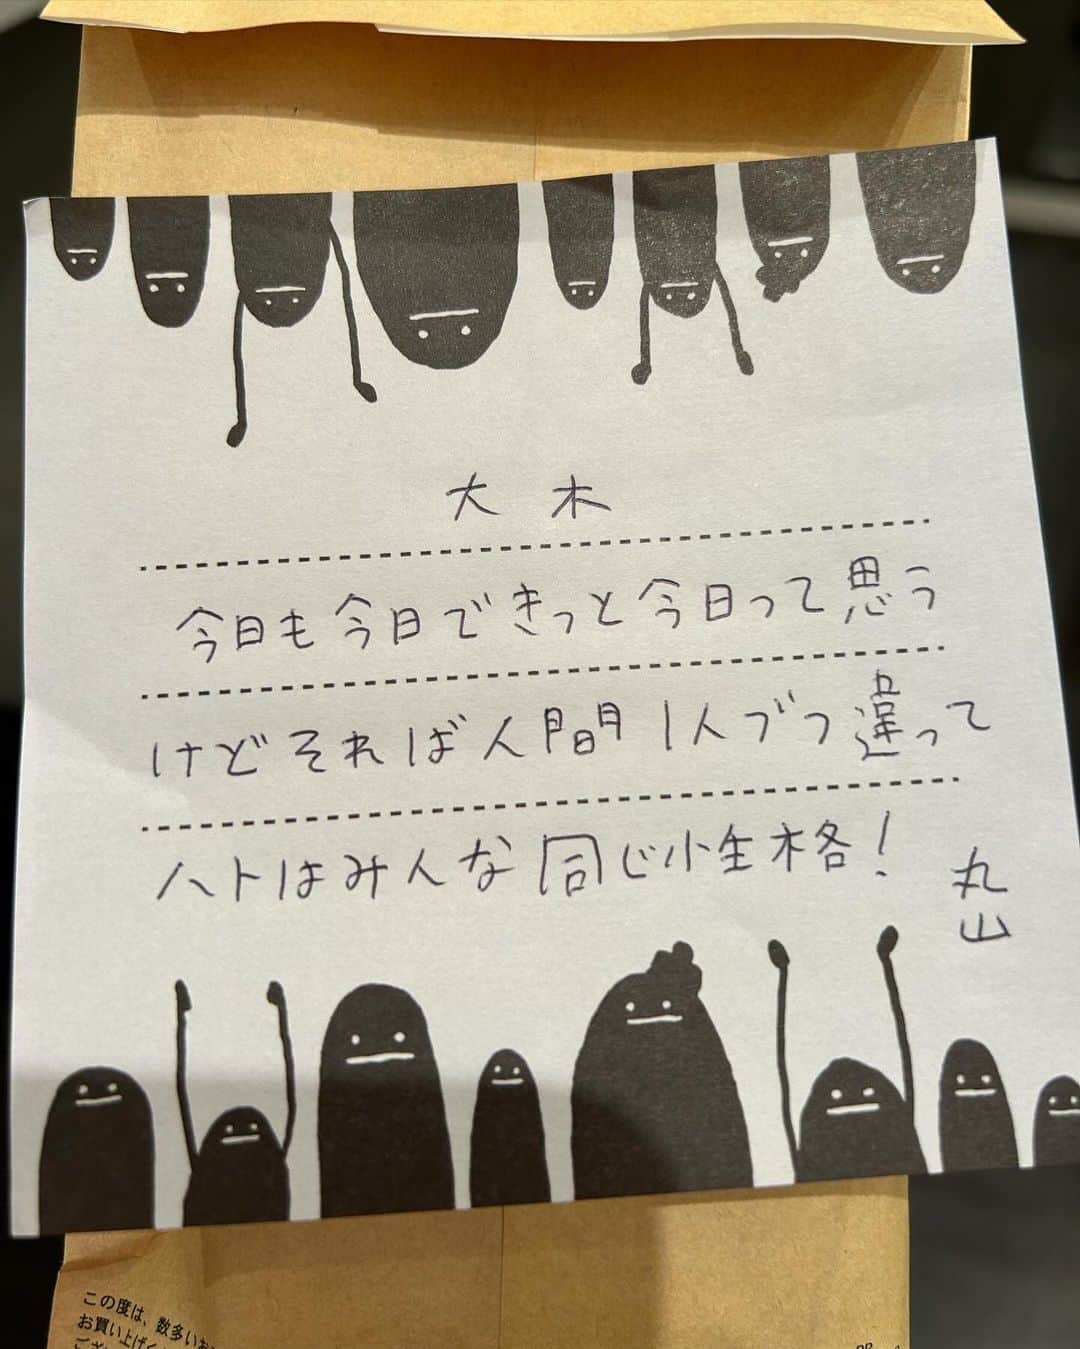 大木
今日も今日できっと今日って思う
けどそれば人間1人ブつ違って
ハトはみんな同じ性格!
丸山
この度は、数多いお
お買い上げく